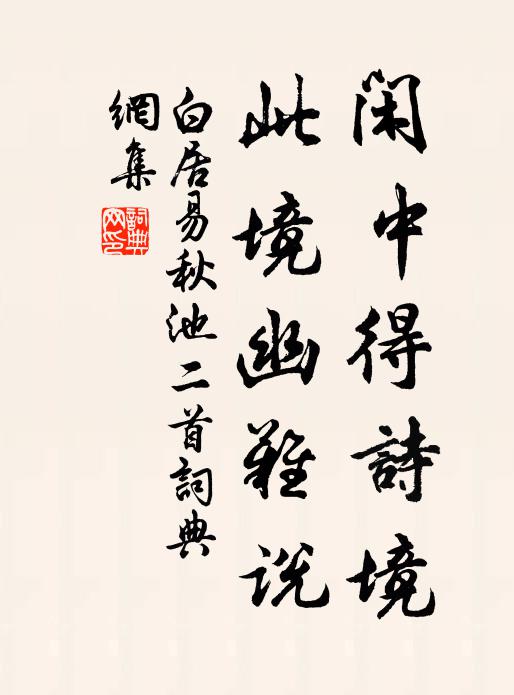 閑中得詩境
此境幽難説
白居易秋池二首詞典
網集
詞典
网印